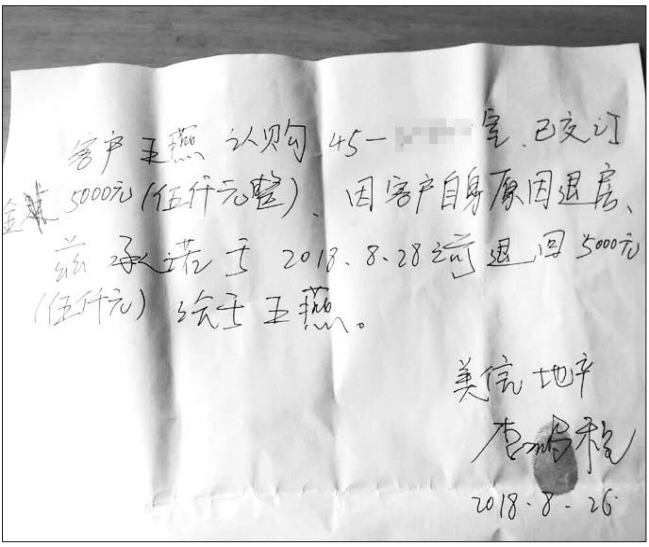 客户王燕认购45-室、已交订
金 5000元(伍仟元整)、因客户自身原因退房、
兹承诺于2018.8.28之前退回5000元
(伍仟元)给于王燕。
美信地产
李鹏程
2018.8.26